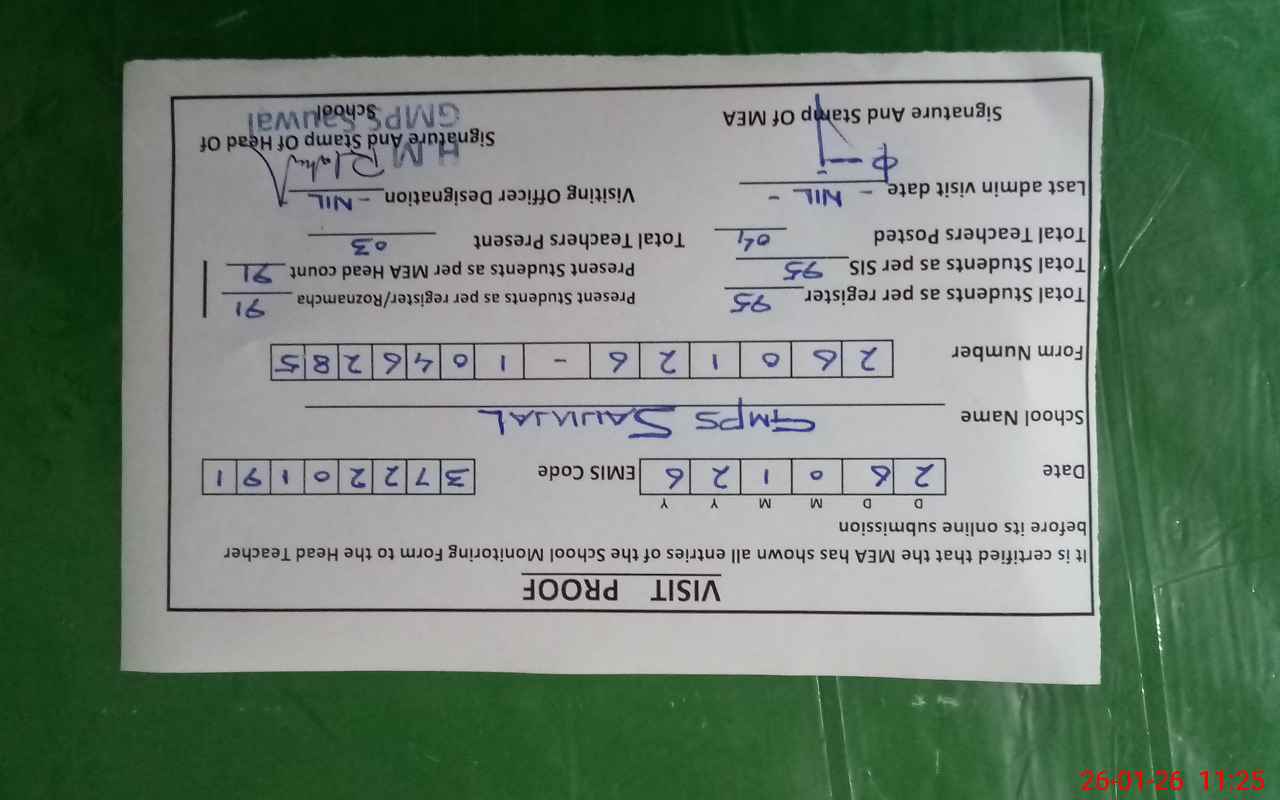 VISIT PROOF
It is certified that the MEA has shown all entries of the School Monitoring Form to the Head Teacher
before its online submission
D D M M Y Y
Date 2 6 0 1 2 6 EMIS Code 3 7 2 2 0 1 9 1
School Name GMPS SAUWAL
Form Number 2 6 0 1 2 6 - 1 0 4 6 2 8 5
Total Students as per register 95 Present Students as per register/Roznamcha 91
Total Students as per SIS 95 Present Students as per MEA Head count 91
Total Teachers Posted 04 Total Teachers Present 03
Last admin visit date - NIL - Visiting Officer Designation - NIL -
H.M
Signature And Stamp Of MEA Signature And Stamp Of Head Of
School
GMPS Sauwal
26-01-26 11:25